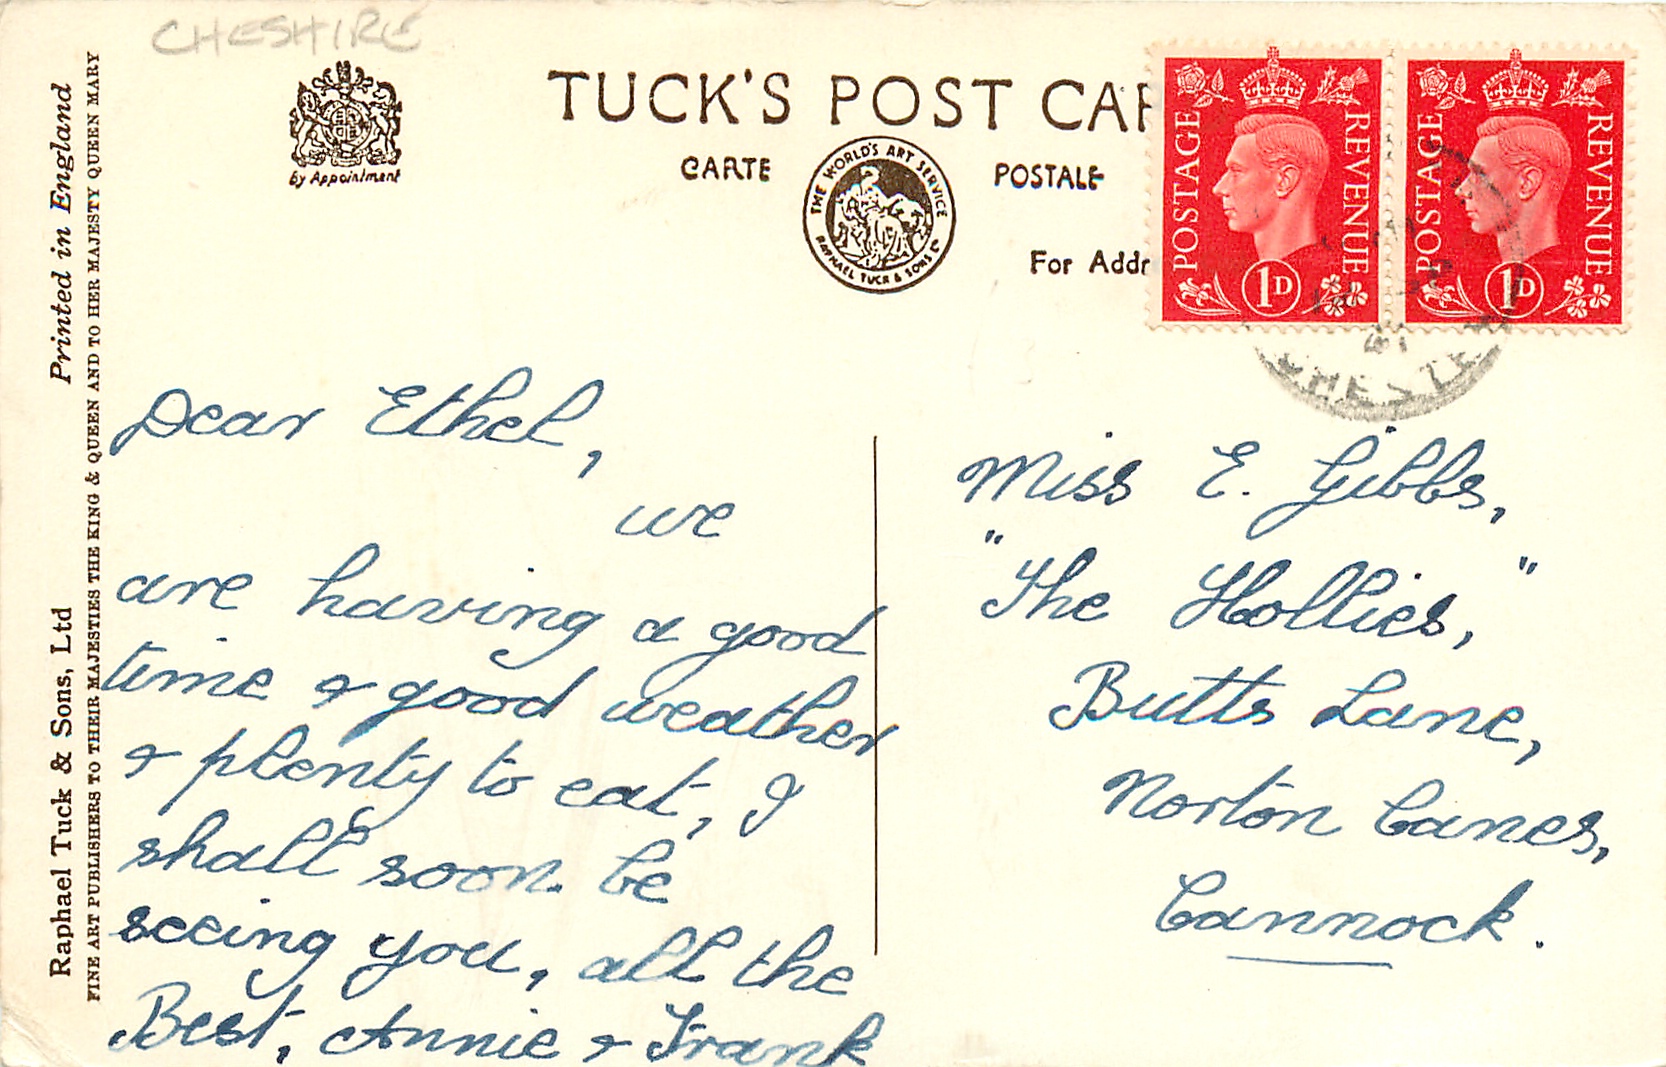 CHESHIRE
By Appointment
TUCK'S POST CAR
CARTE POSTALE
THE WORLD'S ART SERVICE
RAPHAEL TUCK & SONS LD
For Addr
POSTAGE REVENUE
1D
POSTAGE REVENUE
1D
CHESTER
Printed in England
Raphael Tuck & Sons, Ltd
FINE ART PUBLISHERS TO THEIR MAJESTIES THE KING & QUEEN AND TO HER MAJESTY QUEEN MARY
Dear Ethel,
we
are having a good
time & good weather
& plenty to eat, I
shall soon be
seeing you, all the
Best, Annie & Frank
Miss E. Gibbs,
"The Hollies,"
Butts Lane,
Norton Canes,
Cannock.